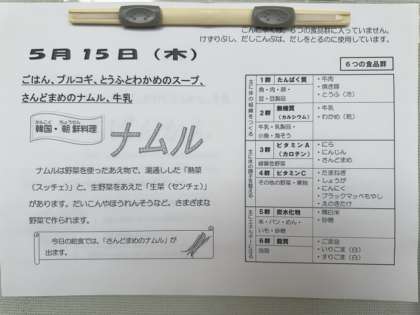 こんにゃくは、6つの食品群に入っていません。
けずりぶし、だしこんぶは、だしをとるのに使用しています。
5月15日（木）
ごはん、プルコギ、とうふとわかめのスープ、
さんどまめのナムル、牛乳
かんこく ちょうせんりょうり
韓国・朝鮮料理
ナムル
ナムルは野菜を使ったあえ物で、湯通しした「熟菜
（スッチェ）」と、生野菜をあえた「生菜（センチェ）」
があります。だいこんやほうれんそうなど、さまざまな
野菜で作られます。
今日の給食では、「さんどまめのナムル」が
出ます。
6つの食品群
主に体の組織をつくる
1群 たんぱく質
魚・肉・卵・
豆・豆製品
・牛肉
・焼き豚
・とうふ（冷）
2群 無機質
（カルシウム）
牛乳・乳製品・
小魚・海そう
・牛乳
・わかめ（乾）
主に体の調子を整える
3群 ビタミンA
（カロテン）
緑黄色野菜
・にら
・にんじん
・さんどまめ
4群 ビタミンC
その他の野菜・果物
・たまねぎ
・しょうが
・にんにく
・ブラックマッペもやし
・えのきたけ
主にエネルギーになる
5群 炭水化物
米・パン・めん・
いも・砂糖
・精白米
・砂糖
6群 脂質
油脂
・ごま油
・いりごま（白）
・すりごま（白）